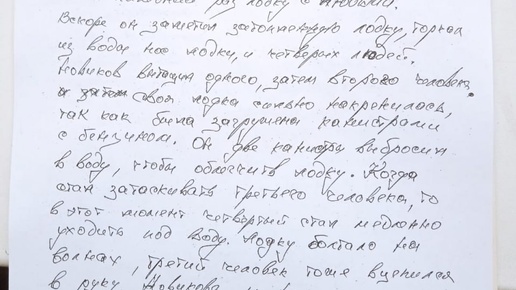 раз лодку с людьми.
Вскоре он заметил затопленную лодку, торчал
из воды нос лодки, и четверых людей.
Новиков вытащил одного, затем второго человека,
и затем своя лодка сильно накренилась,
так как была загружена канистрами
с бензином. Он две канистры выбросил
в воду, чтобы облегчить лодку. Когда
стал затаскивать третьего человека, то
в этот момент четвертый стал медленно
уходить под воду. Лодку болтало на
волнах, третий человек тоже вцепился
в руку Новикова